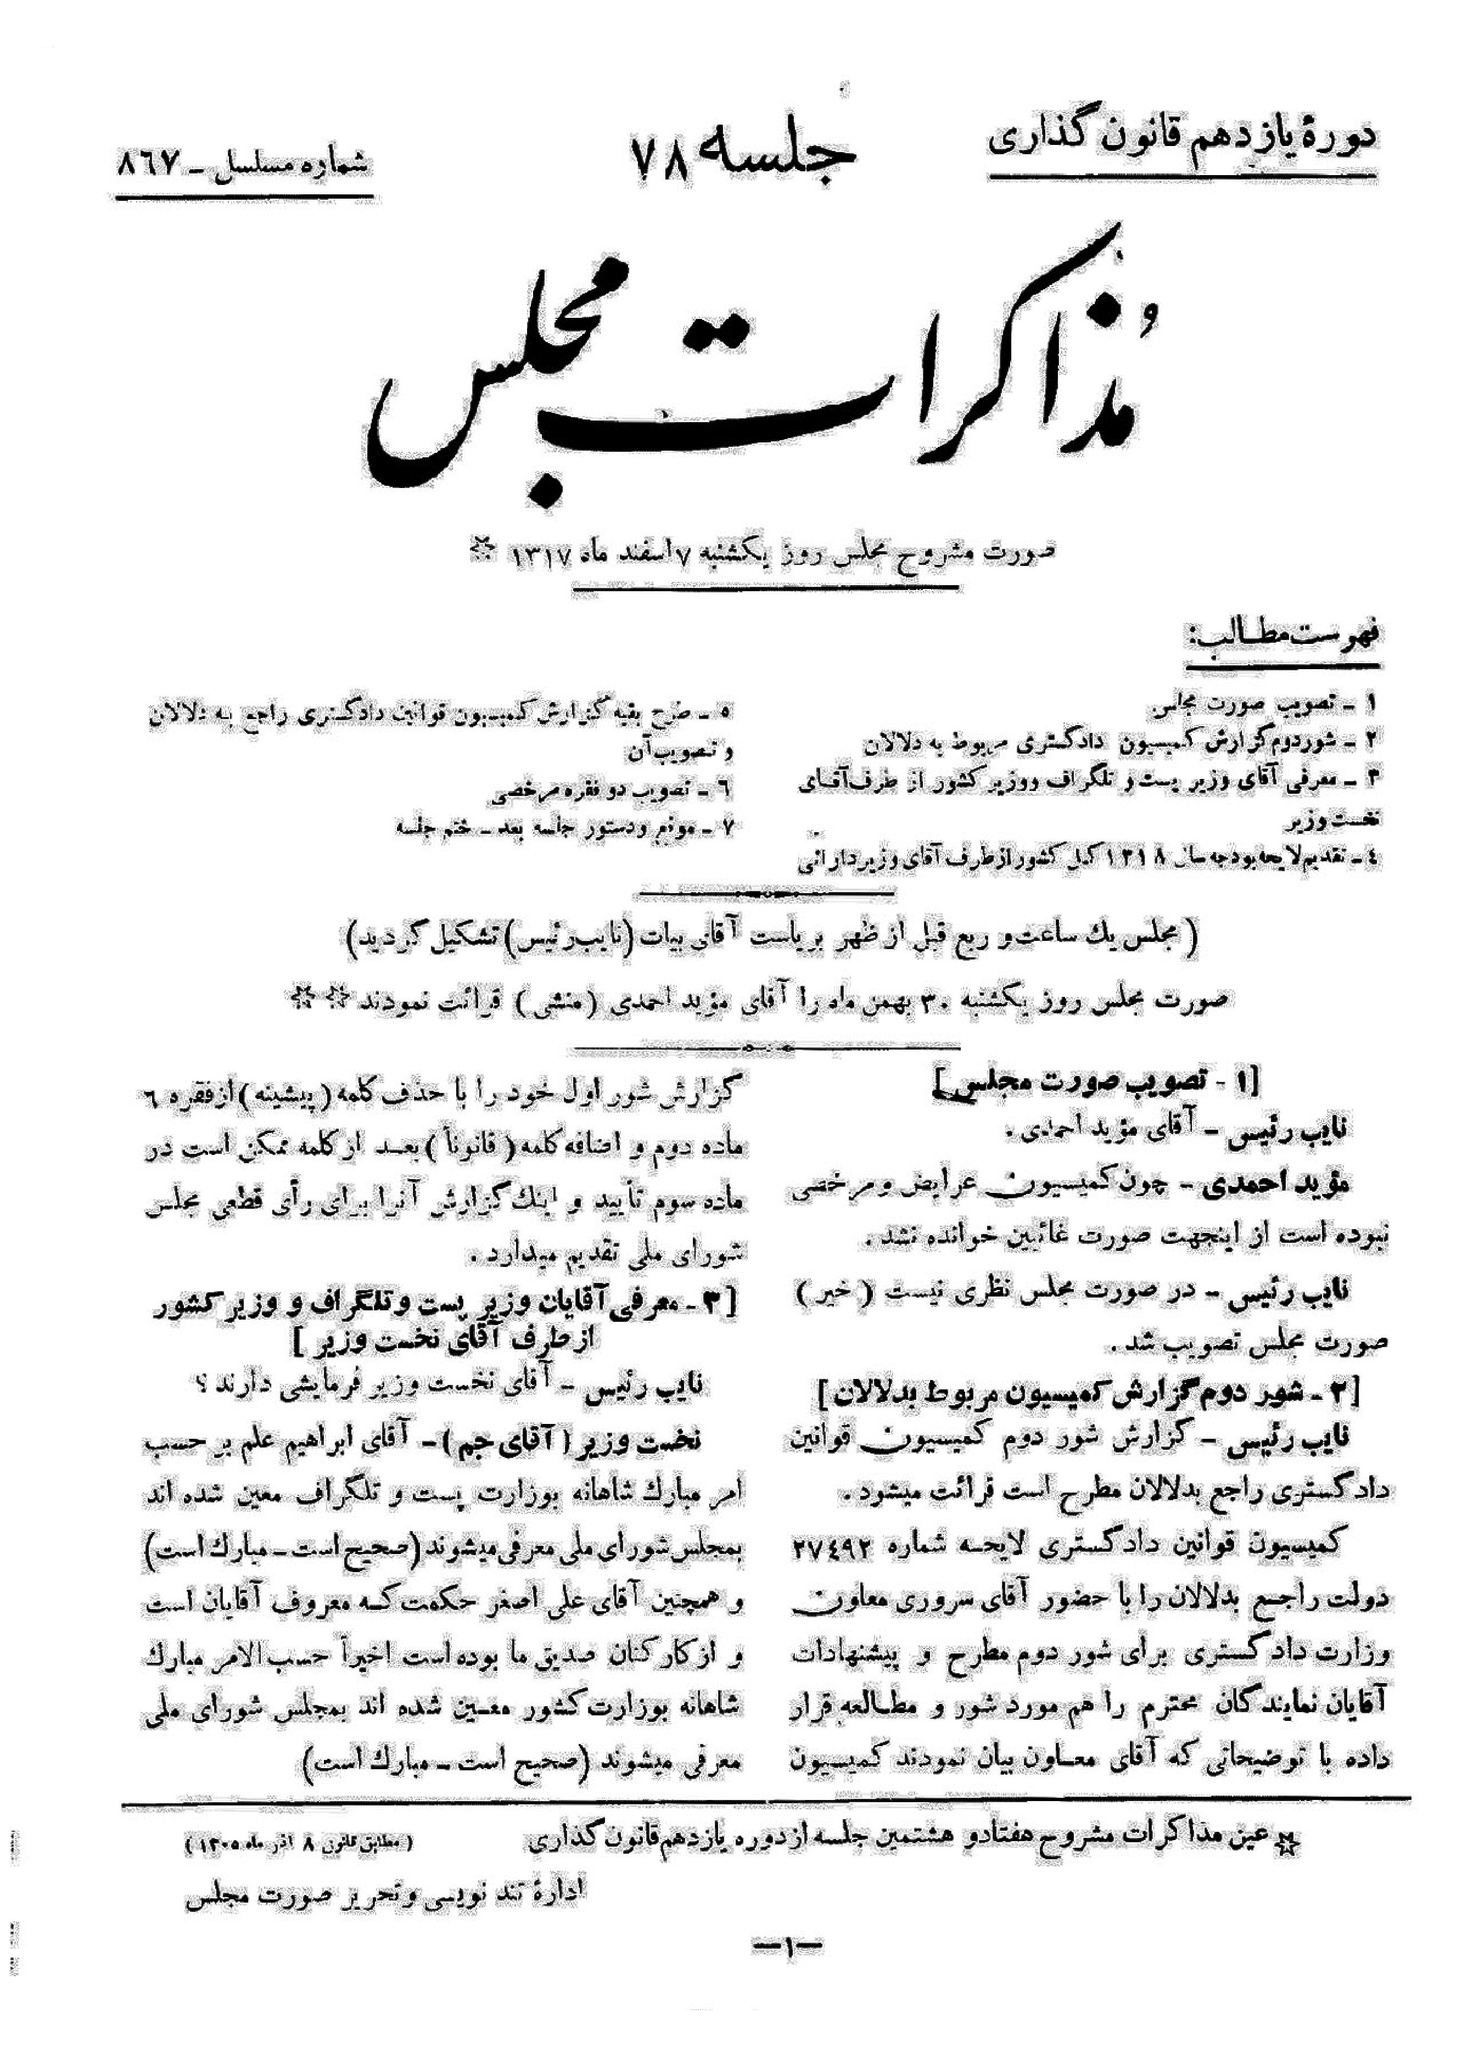 دورهٔ یازدهم قانون گذاری
جلسه ۷۸
شماره مسلسل ـ ۸۶۷
مذاکرات مجلس
صورت مشروح مجلس روز یکشنبه ۷ اسفند ماه ۱۳۱۷ ☆
فهرست مطالب:
۱ ـ تصویب صورت مجلس
۲ ـ شور دوم گزارش کمیسیون دادگستری مربوط به دلالان
۳ ـ معرفی آقای وزیر پست و تلگراف و وزیر کشور از طرف آقای
نخست وزیر
٤ ـ تقدیم لایحه بودجه سال ۱۳۱۸ کل کشور از طرف آقای وزیر دارائی
۵ ـ طرح بقیه گزارش کمیسیون قوانین دادگستری راجع به دلالان
و تصویب آن
٦ ـ تصویب دو فقره مرخصی
۷ ـ موقع و دستور جلسه بعد ـ ختم جلسه
(مجلس یك ساعت و ربع قبل از ظهر بریاست آقای بیات (نایب رئیس) تشکیل گردید)
صورت مجلس روز یکشنبه ۳۰ بهمن ماه را آقای مؤید احمدی (منشی) قرائت نمودند ☆☆
[۱ - تصویب صورت مجلس]
نایب رئیس ـ آقای مؤید احمدی.
مؤید احمدی ـ چون کمیسیون عرایض و مرخصی
نبوده است از اینجهت صورت غائبین خوانده نشد.
نایب رئیس ـ در صورت مجلس نظری نیست (خیر)
صورت مجلس تصویب شد.
[۲ ـ شور دوم گزارش کمیسیون مربوط بدلالان]
نایب رئیس ـ گزارش شور دوم کمیسیون قوانین
دادگستری راجع بدلالان مطرح است قرائت میشود.
کمیسیون قوانین دادگستری لایحه شماره ۲۷٤۹۲
دولت راجع بدلالان را با حضور آقای سروری معاون
وزارت دادگستری برای شور دوم مطرح و پیشنهادات
آقایان نمایندگان محترم را هم مورد شور و مطالعه قرار
داده با توضیحاتی که آقای معاون بیان نمودند کمیسیون
گزارش شور اول خود را با حذف کلمه (پیشینه) از فقره ٦
ماده دوم و اضافه کلمه (قانوناً) بعد از کلمه ممکن است در
ماده سوم تأیید و اینك گزارش آنرا برای رأی قطعی مجلس
شورای ملی تقدیم میدارد.
[۳ ـ معرفی آقایان وزیر پست و تلگراف و وزیر کشور
از طرف آقای نخست وزیر]
نایب رئیس ـ آقای نخست وزیر فرمایشی دارند؟
نخست وزیر (آقای جم) ـ آقای ابراهیم علم بر حسب
امر مبارك شاهانه بوزارت پست و تلگراف معین شده اند
بمجلس شورای ملی معرفی میشوند (صحیح است ـ مبارك است)
و همچنین آقای علی اصغر حکمت که معروف آقایان است
و از کارکنان صدیق ما بوده است اخیراً حسب الامر مبارك
شاهانه بوزارت کشور معین شده اند بمجلس شورای ملی
معرفی میشوند (صحیح است ـ مبارك است)
☆ عین مذاکرات مشروح هفتاد و هشتمین جلسه از دوره یازدهم قانون گذاری
(مطابق قانون ۸ آذر ماه ۱۳۰۵)
ادارهٔ تند نویسی و تحریر صورت مجلس
—۱—